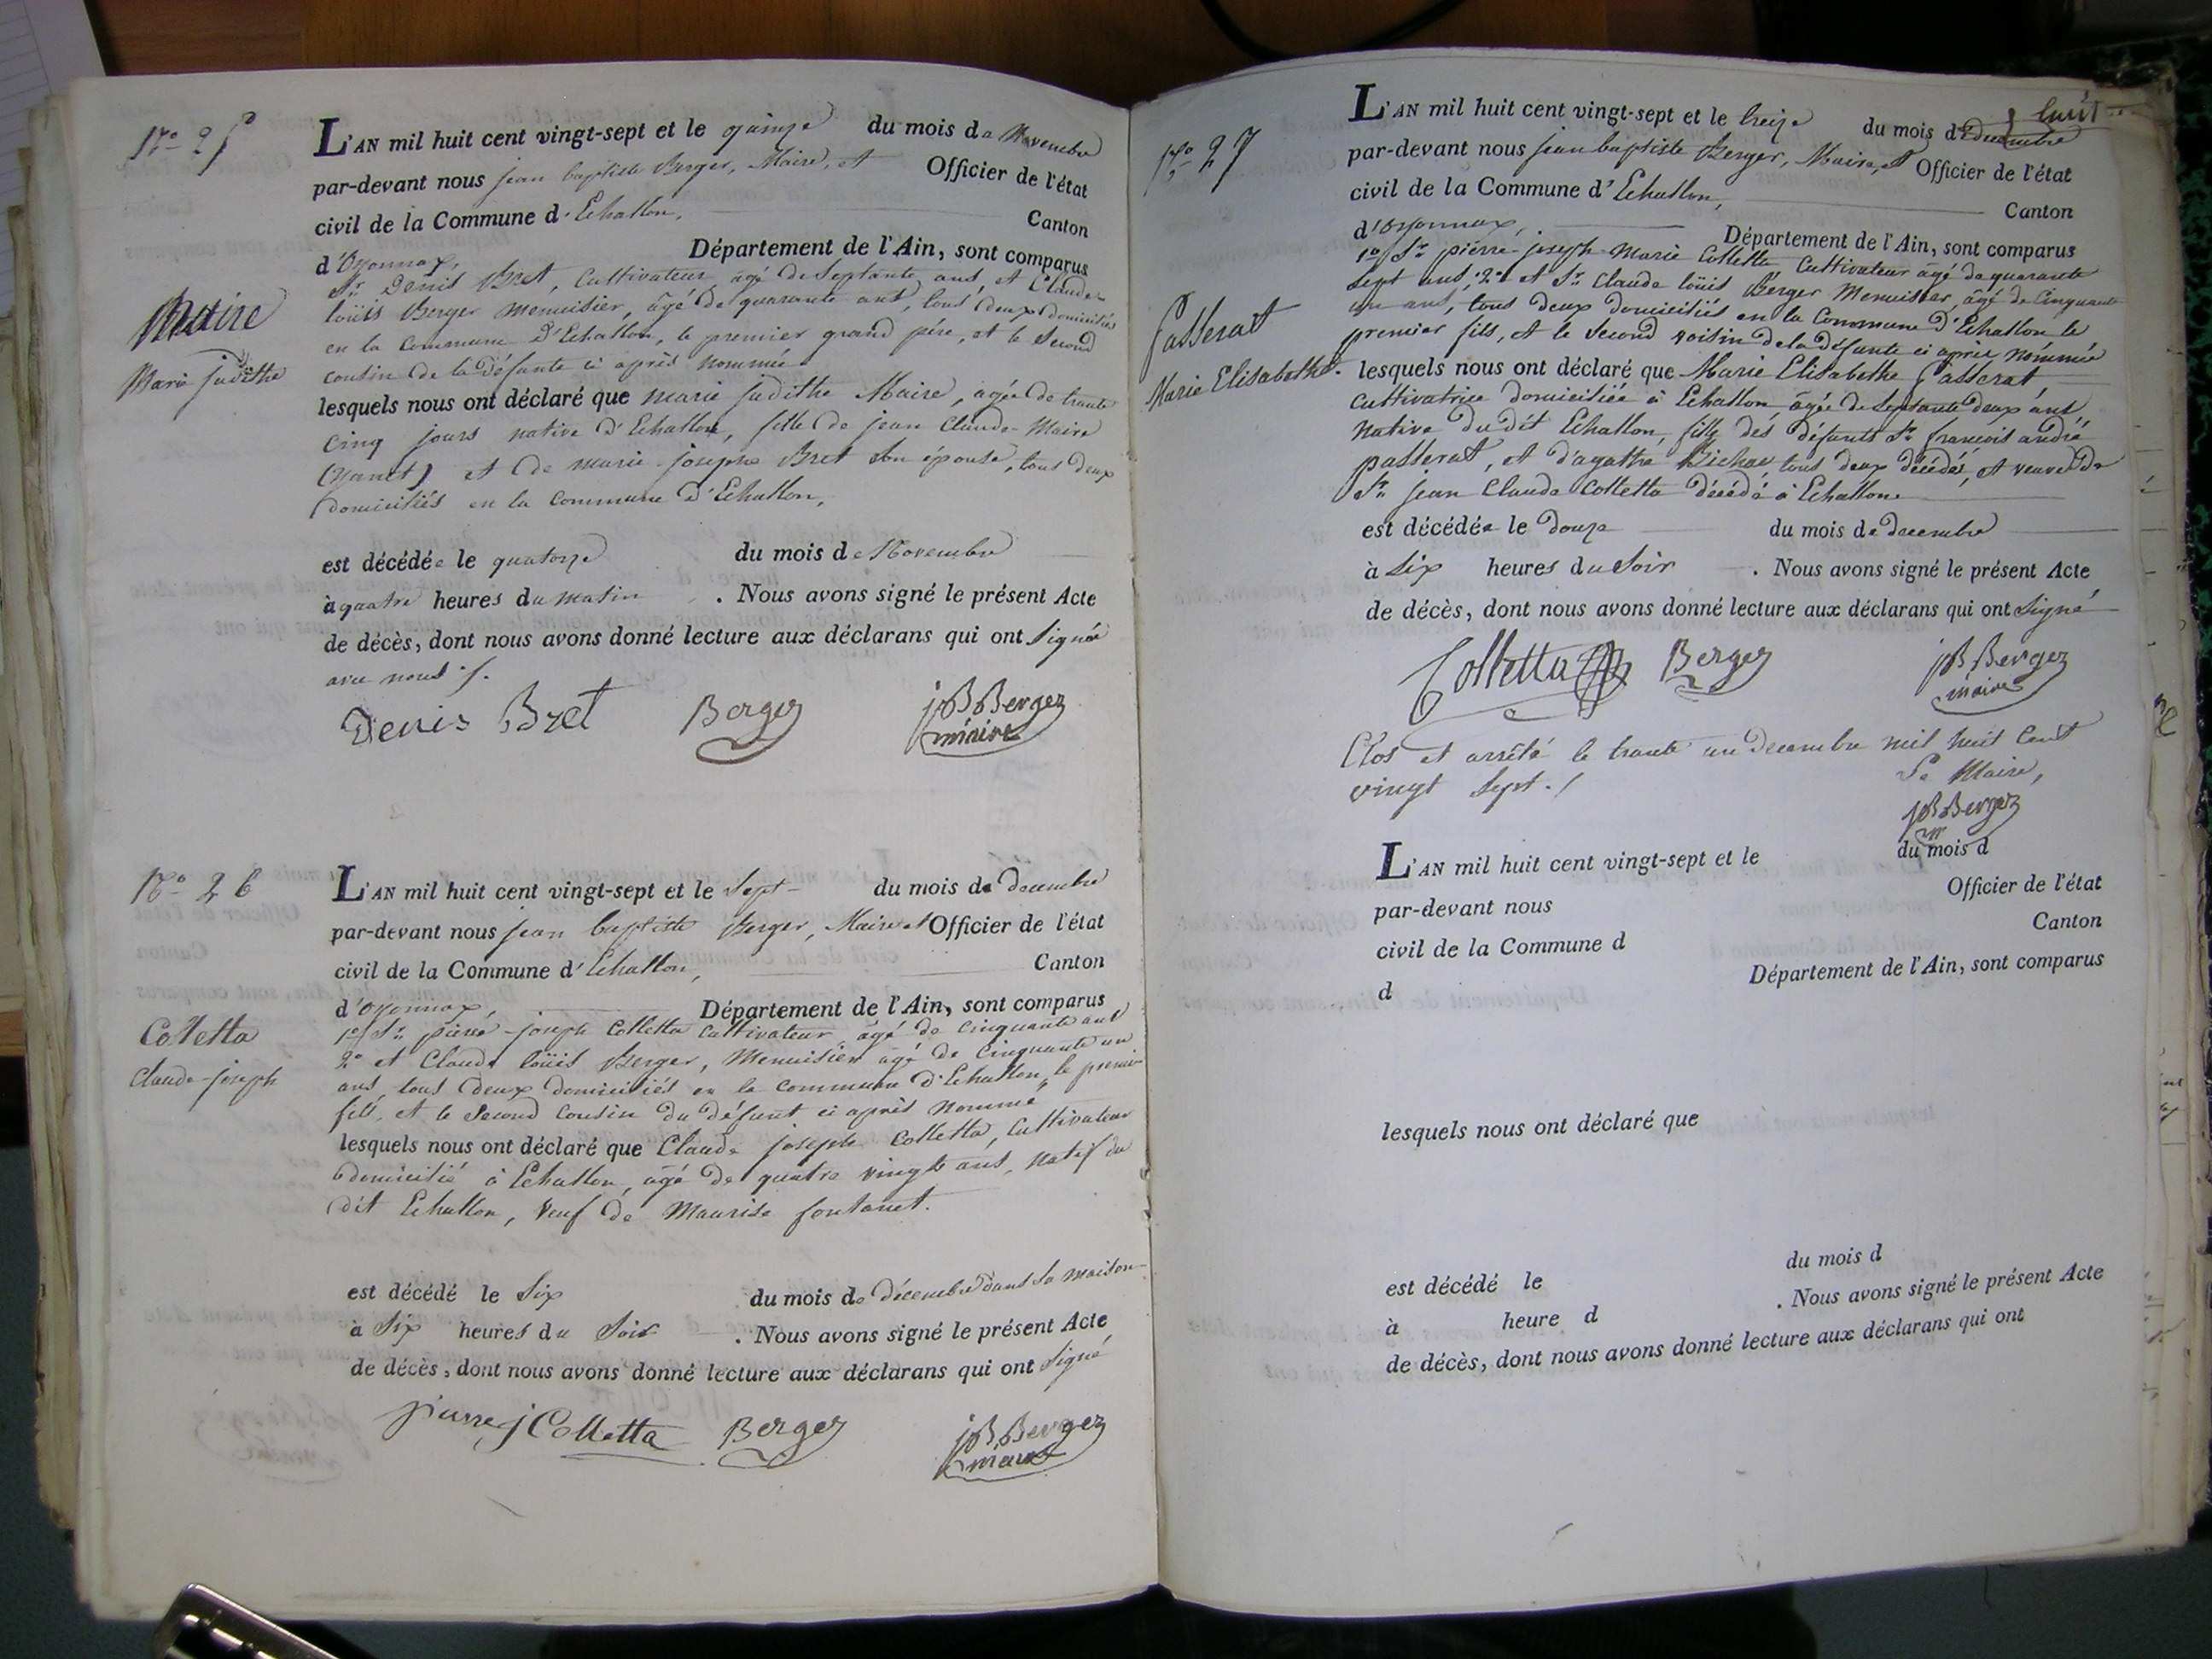 No 25
L'AN mil huit cent vingt-sept et le quinze du mois de Novembre
par-devant nous jean baptiste Berger, Maire, et Officier de l'état
civil de la Commune d'Echallon, Canton
d'Oyonnax, Département de l'Ain, sont comparus
Sr Denis Bret, Cultivateur, agé de Septante ans, et Claude
loüis Berger Menuisier, âgé de quarante ans, tous deux domiciliés
en la Commune D'Echallon, le premier grand père, et le Second
cousin de la Défunte ci après nommée
Maire
Marie judithe
lesquels nous ont déclaré que marie judithe Maire, agée de trante
cinq jours native d'Echallon, fille de jean Claude Maire
et de marie josephe Bret son épouse, tous deux
domiciliés en la Commune D'Echallon,
est décédée le quatorze du mois de Novembre
à quatre heures du matin . Nous avons signé le présent Acte
de décès, dont nous avons donné lecture aux déclarans qui ont Signé
avec nous ./.
Denis Bret Berger jB Berger
maire
No 26
L'AN mil huit cent vingt-sept et le Sept du mois de decembre
par-devant nous jean baptiste Berger, Maire et Officier de l'état
civil de la Commune d'Echallon, Canton
d'oyonnax, Département de l'Ain, sont comparus
1o Sr pierre-joseph Colletta Cultivateur, âgé de cinquante ans
2o et Claude loüis Berger, Menuisier âgé de Cinquante un
ans, tous deux domiciliés en la commune d'Echallon, le premier
fils, et le Second Cousin du défunt ci après nommé
Colletta
Claude-joseph
lesquels nous ont déclaré que Claude joseph Colletta, Cultivateur
domicilié à Echallon, âgé de quatre vingts ans, natif du
dit Echallon, veuf de Maurise fontanet.
est décédé le Six du mois de décembre dans sa maison
à Six heures du Soir . Nous avons signé le présent Acte
de décès, dont nous avons donné lecture aux déclarans qui ont Signé
pierre j Colletta Berger jB Berger
maire
huit
No 27
L'AN mil huit cent vingt-sept et le treize du mois de decembre
par-devant nous jean baptiste Berger, Maire, et Officier de l'état
civil de la Commune d'Echallon, Canton
d'Oyonnax, Département de l'Ain, sont comparus
1o Sr pierre-joseph-Marie Colletta Cultivateur âgé de quarante
Sept ans, 2o et Sr Claude loüis Berger Menuisier, âgé de Cinquante
un ans, tous deux domiciliés en la Commune D'Echallon le
premier fils, et le Second voisin de la Défunte ci après nommée
Passerat
Marie Elisabethe.
lesquels nous ont déclaré que Marie Elisabethe Passerat
Cultivatrice domiciliée à Echallon, âgée de Septante deux ans,
native du dit Echallon, fille des défunts Sr françois andré
passerat, et d'agathe tous deux décédés, et veuve de
Sr jean Claude Colletta décédé à Echallon.
est décédée le douze du mois de decembre
à Six heures du Soir . Nous avons signé le présent Acte
de décès, dont nous avons donné lecture aux déclarans qui ont Signé
Colletta Berger jB Berger
maire
Clos et arrêté le trante un decembre mil huit Cent
vingt Sept ./
Le Maire,
jB Berger
m
L'AN mil huit cent vingt-sept et le du mois d
par-devant nous Officier de l'état
civil de la Commune d Canton
d Département de l'Ain, sont comparus
lesquels nous ont déclaré que
est décédé le du mois d
à heure d . Nous avons signé le présent Acte
de décès, dont nous avons donné lecture aux déclarans qui ont